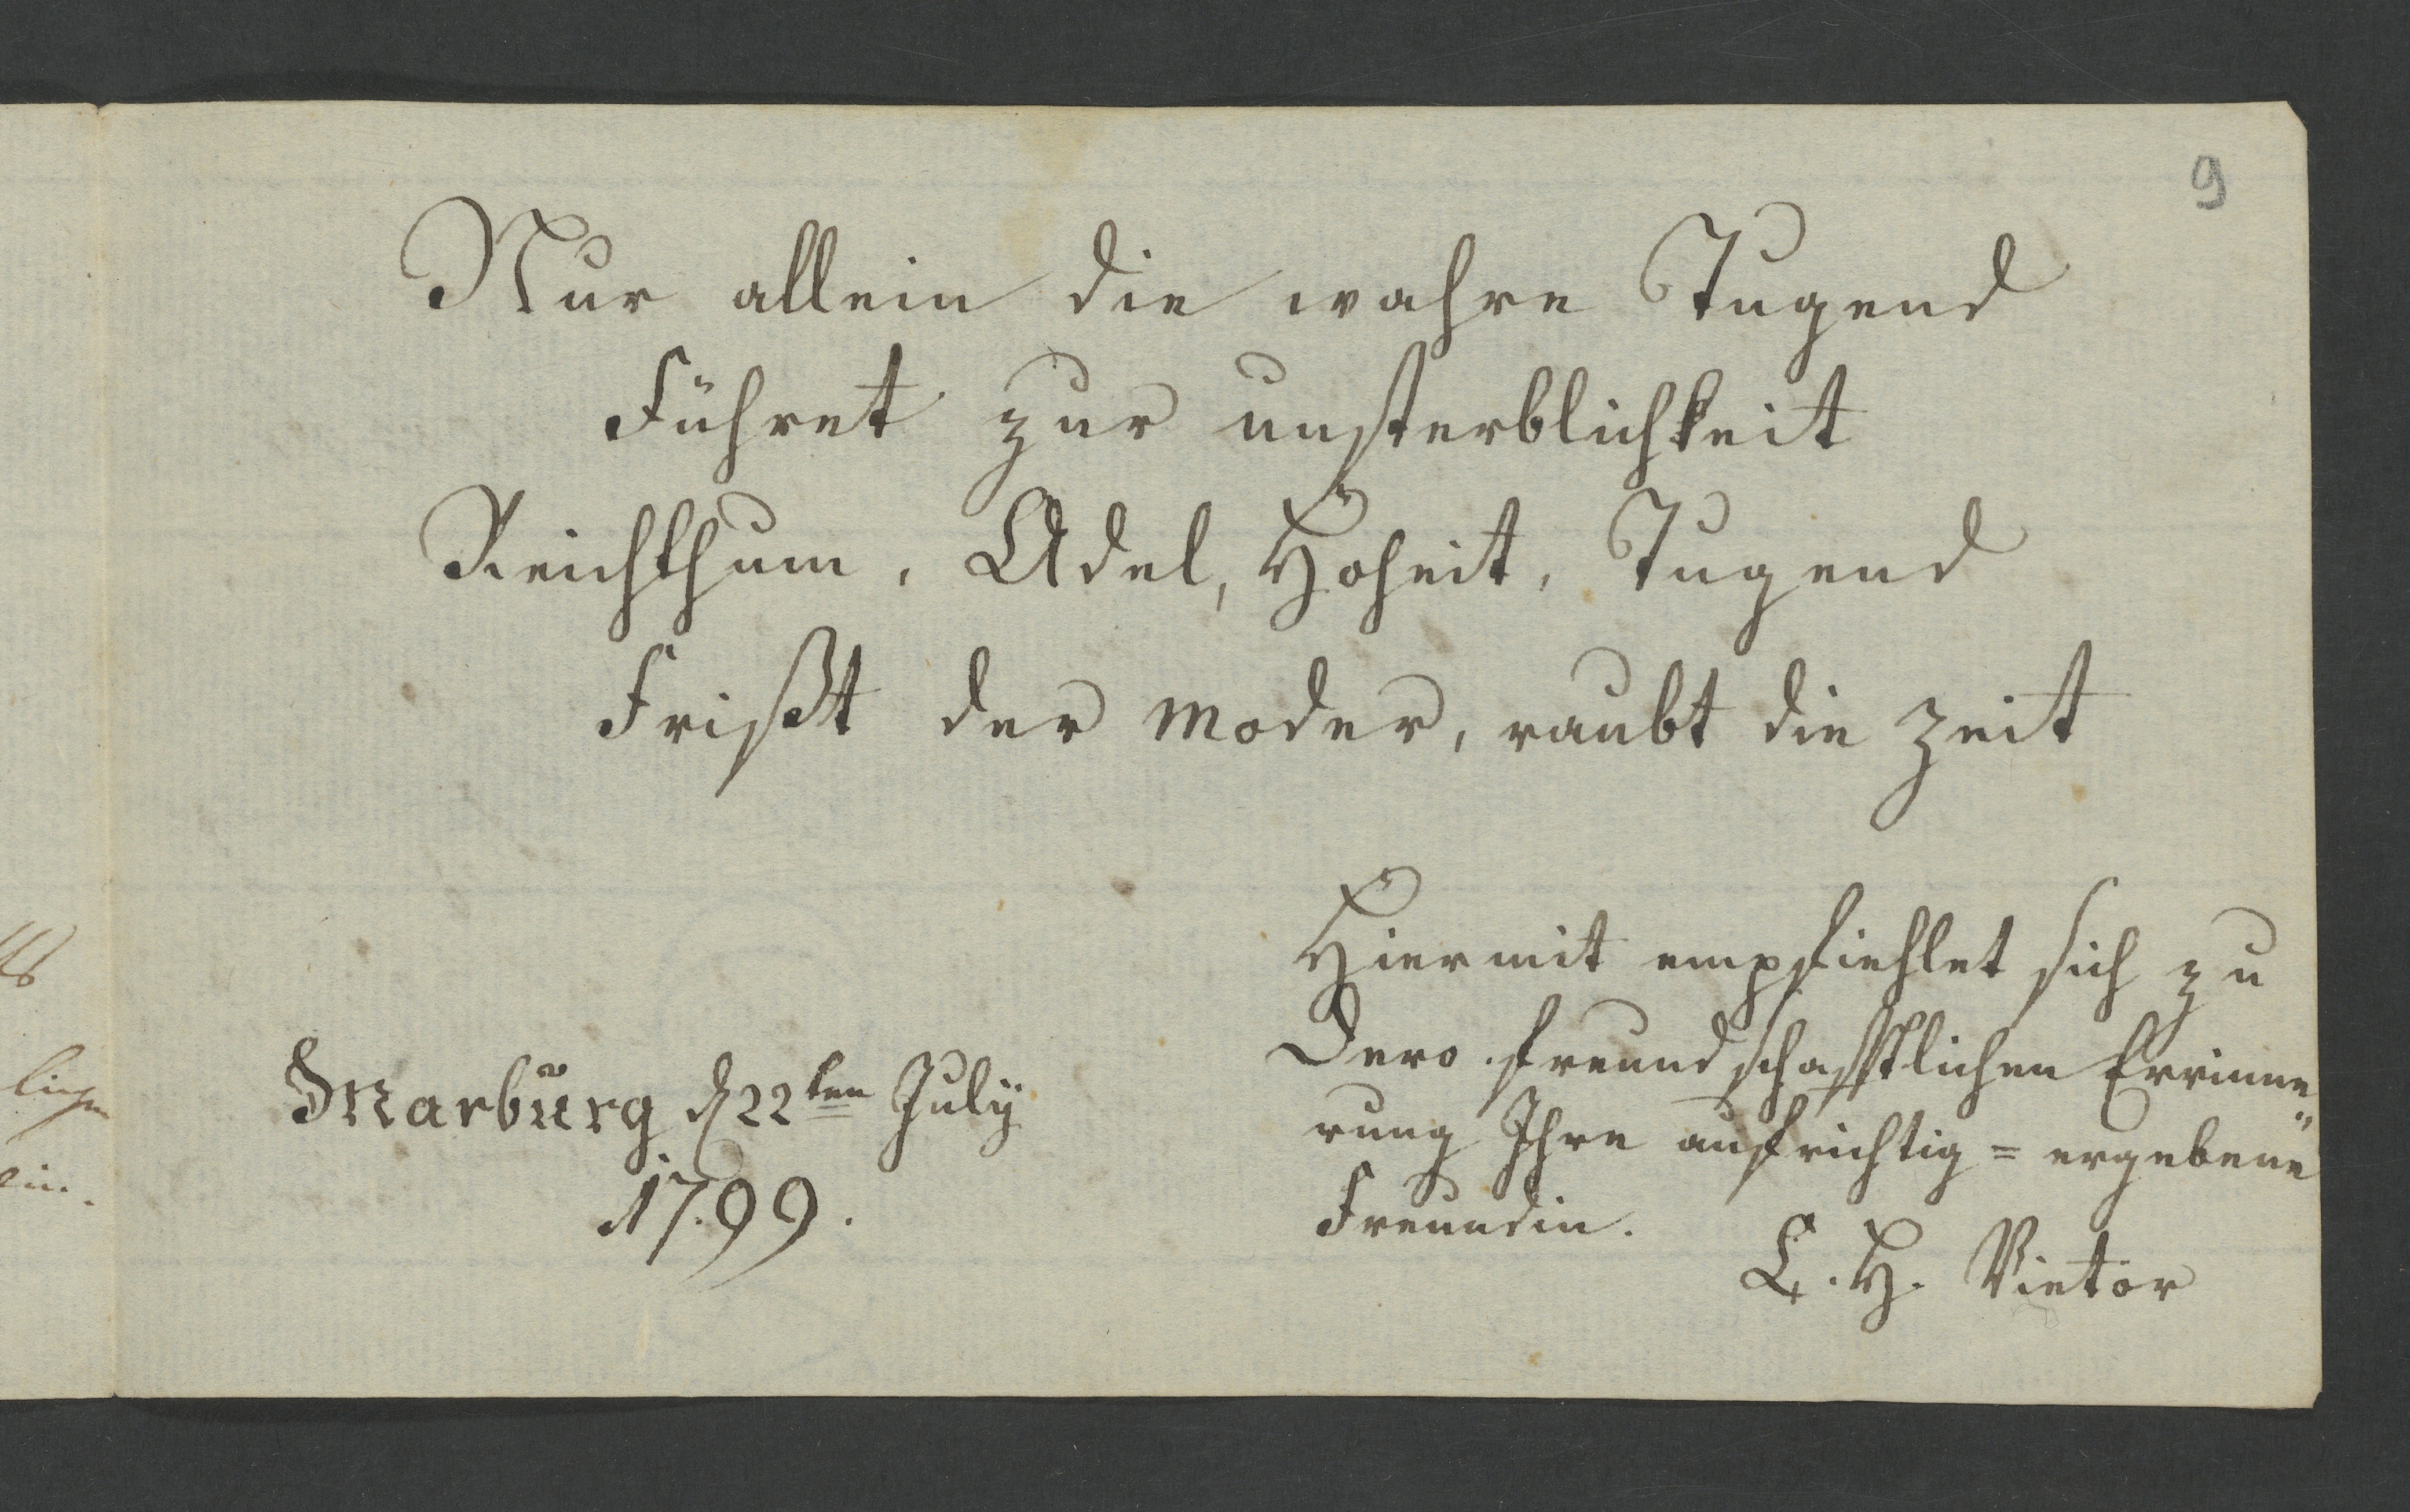 9
Nur allein die wahre Tugend
Führet zur unsterblichkeit
Reichthum, Adel, Hoheit, Jugend
Frißt der Moder, raubt die Zeit
Hiermit empfiehlet sich zu
Dero freundschafftlichen Errinne„
rung Ihre aufrichtig = ergebene
Freundin.
L. H. Vietor
Marburg d 22ten July
1799.